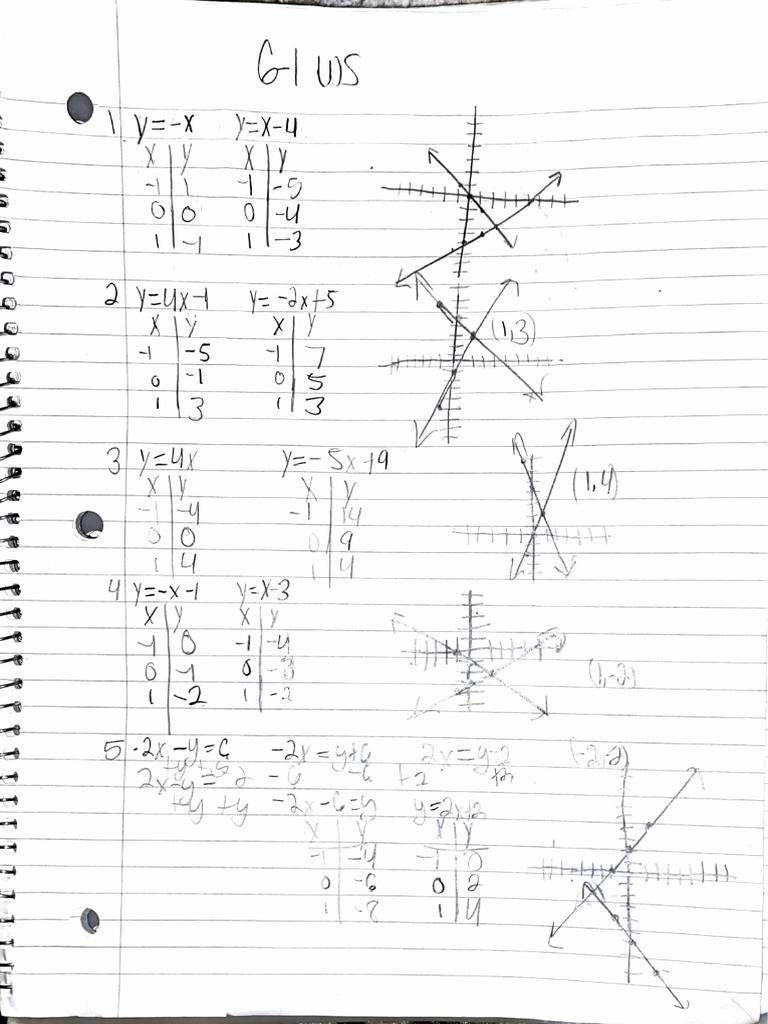 6-1 WS
1 y=-x y=x-4
x | y x | y
-1 | 1 -1 | -5
0 | 0 0 | -4
1 | -1 1 | -3
2 y=4x-1 y=-2x+5
x | y x | y (1,3)
-1 | -5 -1 | 7
0 | -1 0 | 5
1 | 3 1 | 3
3 y=4x y=-5x+9
x | y x | y (1,4)
-1 | -4 -1 | 14
0 | 0 0 | 9
1 | 4 1 | 4
4 y=-x-1 y=x-3
x | y x | y
-1 | 0 -1 | -4
0 | -1 0 | -3 (1,-2)
1 | -2 1 | -2
5 -2x-y=6 -2x=y+6 2x=y-2 (-2,-2)
2x-y=-2 -6 -6 +2 +2
+y +y -2x-6=y y=2x+2
x | y x | y
-1 | -4 -1 | 0
0 | -6 0 | 2
1 | -8 1 | 4